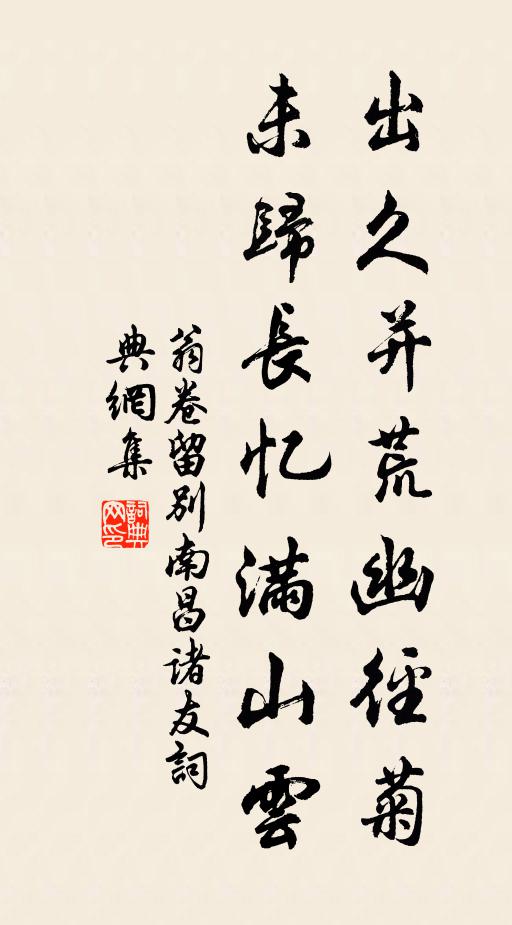 出久并荒幽径菊
未歸長忆滿山雲
翁卷留别南昌诸友詞
典網集
詞典
网印